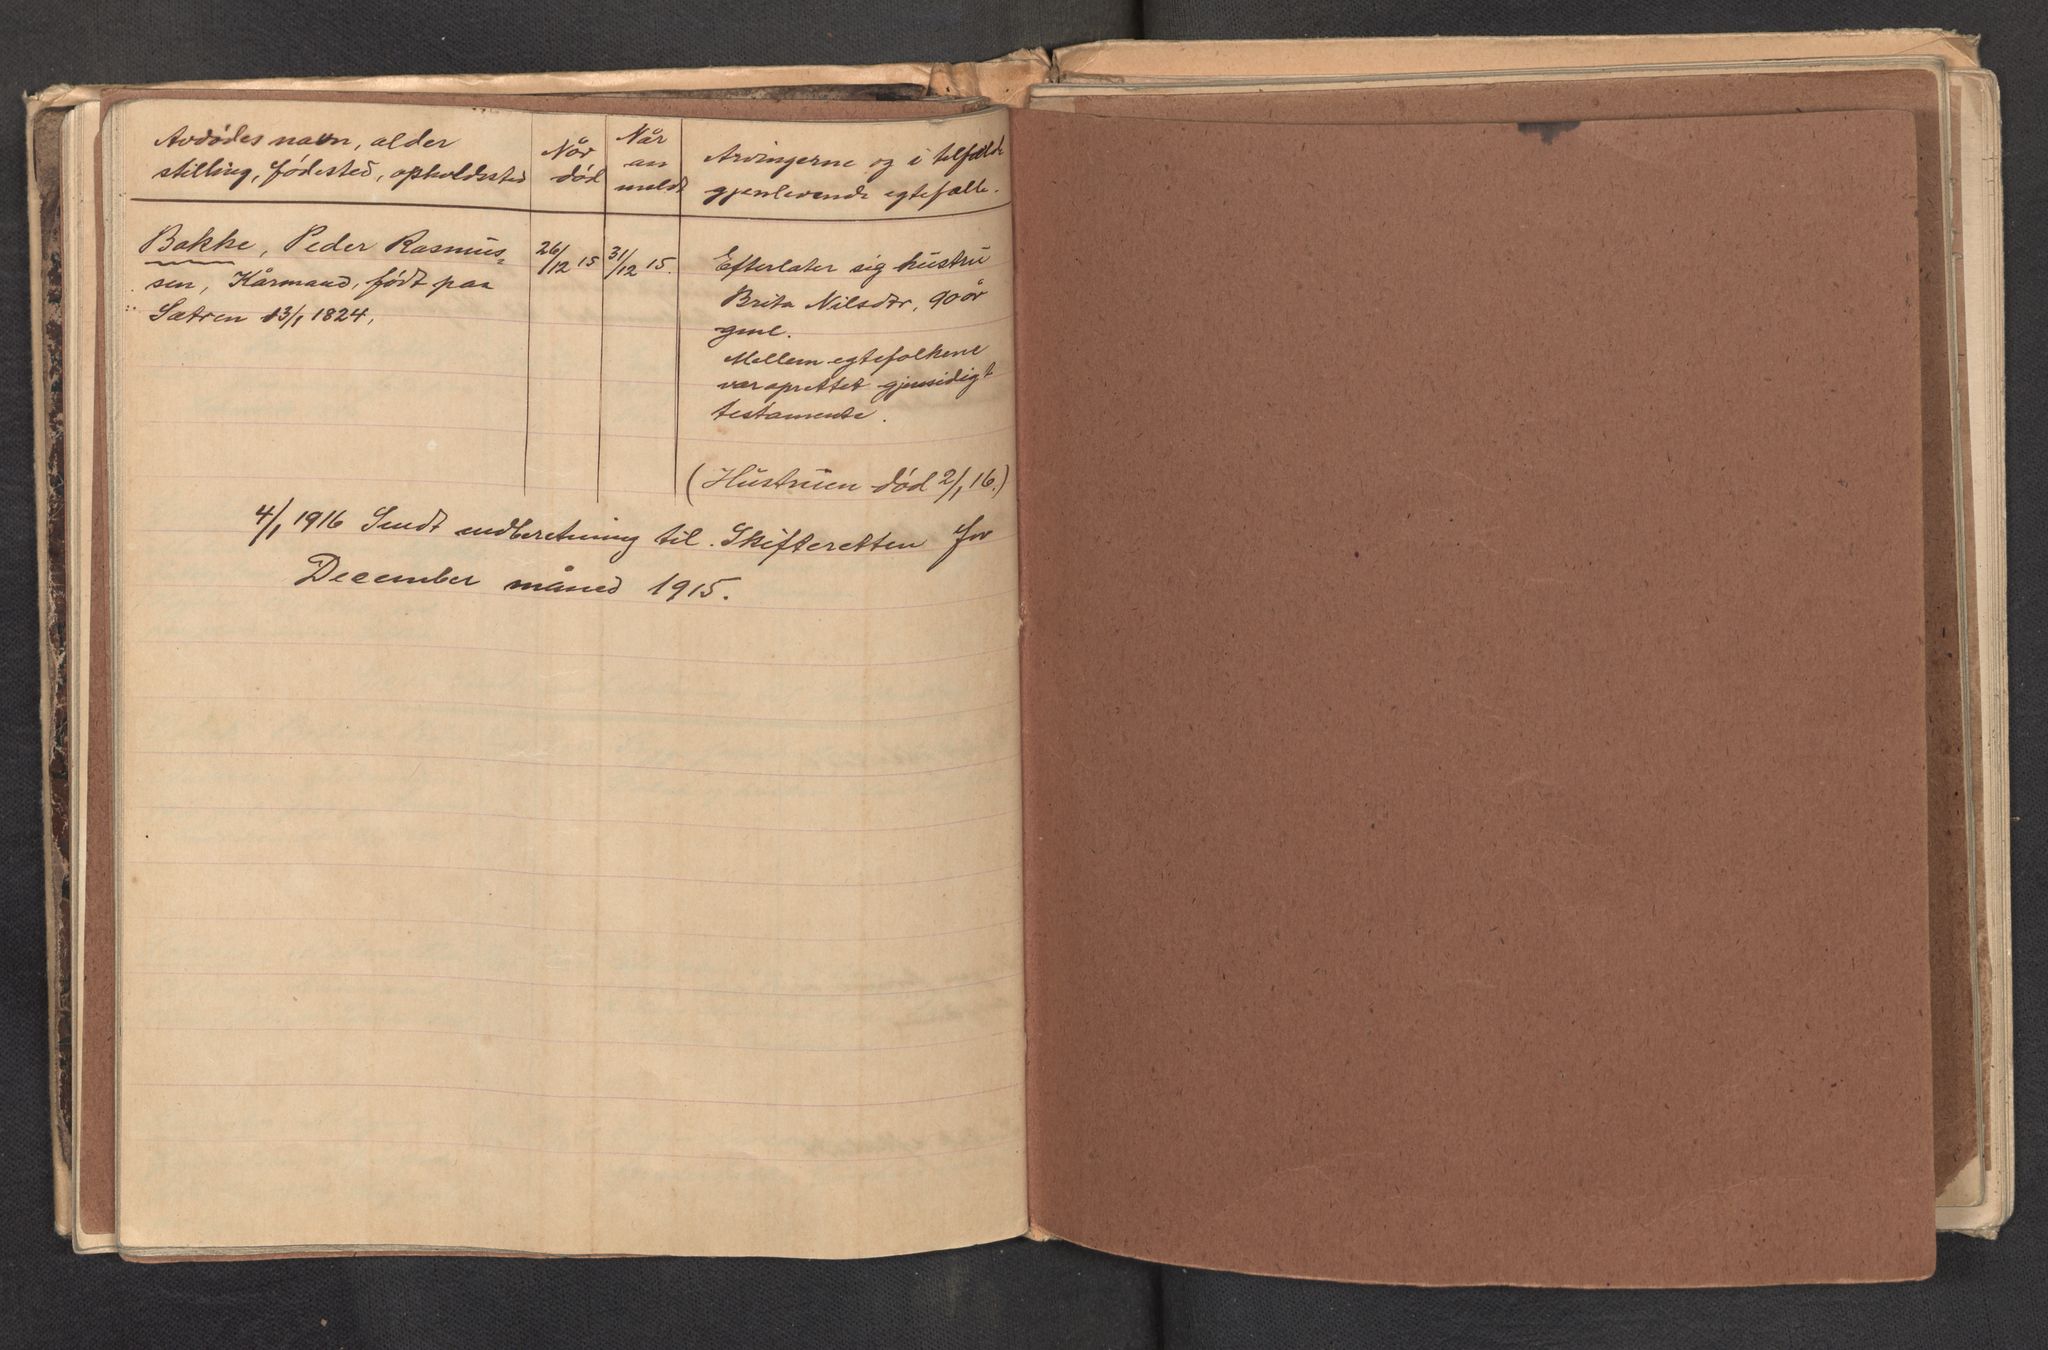 Avdødes navn, alder
stilling, fødested, opholdssted
Når
død
Når
an
meldt
Arvingerne og i tilfælde
gjenlevende egtefælle.
Bakke, Peder Rasmus-
sen, Kårmand, født paa
Sætren 13/1 1824,
26/12 15
31/12 15.
Efterlater sig hustru
Brita Nilsdtr, 90 år
gml.
Mellem egtefolkene
var oprettet gjensidigt
testamente.
(Hustruen død 2/1 16.)
4/1 1916 Sendt indberetning til Skifteretten for
December måned 1915.